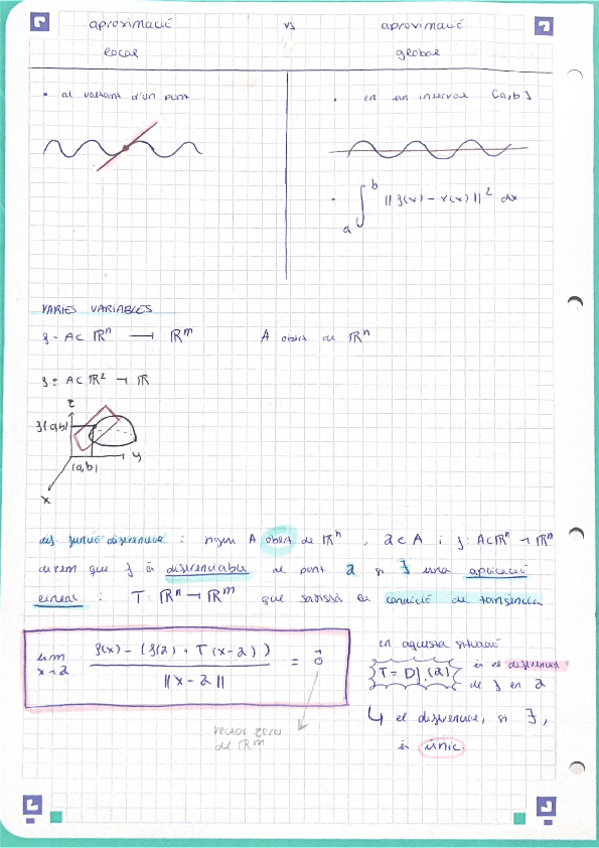 aproximació vs aproximació
local global
• al voltant d'un punt
• en un interval [a,b]
• ∫ₐᵇ ||f(x) - r(x)||² dx
VARIES VARIABLES
f = A⊂ ℝⁿ → ℝᵐ A obert de ℝⁿ
f = A⊂ ℝ² → ℝ
z
f(a,b)
(a,b) y
x
def funció diferenciable : sigui A obert de ℝⁿ, a∈A i f: A⊂ℝⁿ → ℝᵐ
direm que f és diferenciable al punt a si ∃ una aplicació
lineal : T: ℝⁿ → ℝᵐ que satisfà la condició de tangència
lim x→a (f(x) - (f(a) + T(x-a))) / ||x-a|| = 0⃗
vector zero
de ℝᵐ
en aquesta situació
T = Df(a) és el diferencial
de f en a
↳ el diferencial, si ∃,
és únic